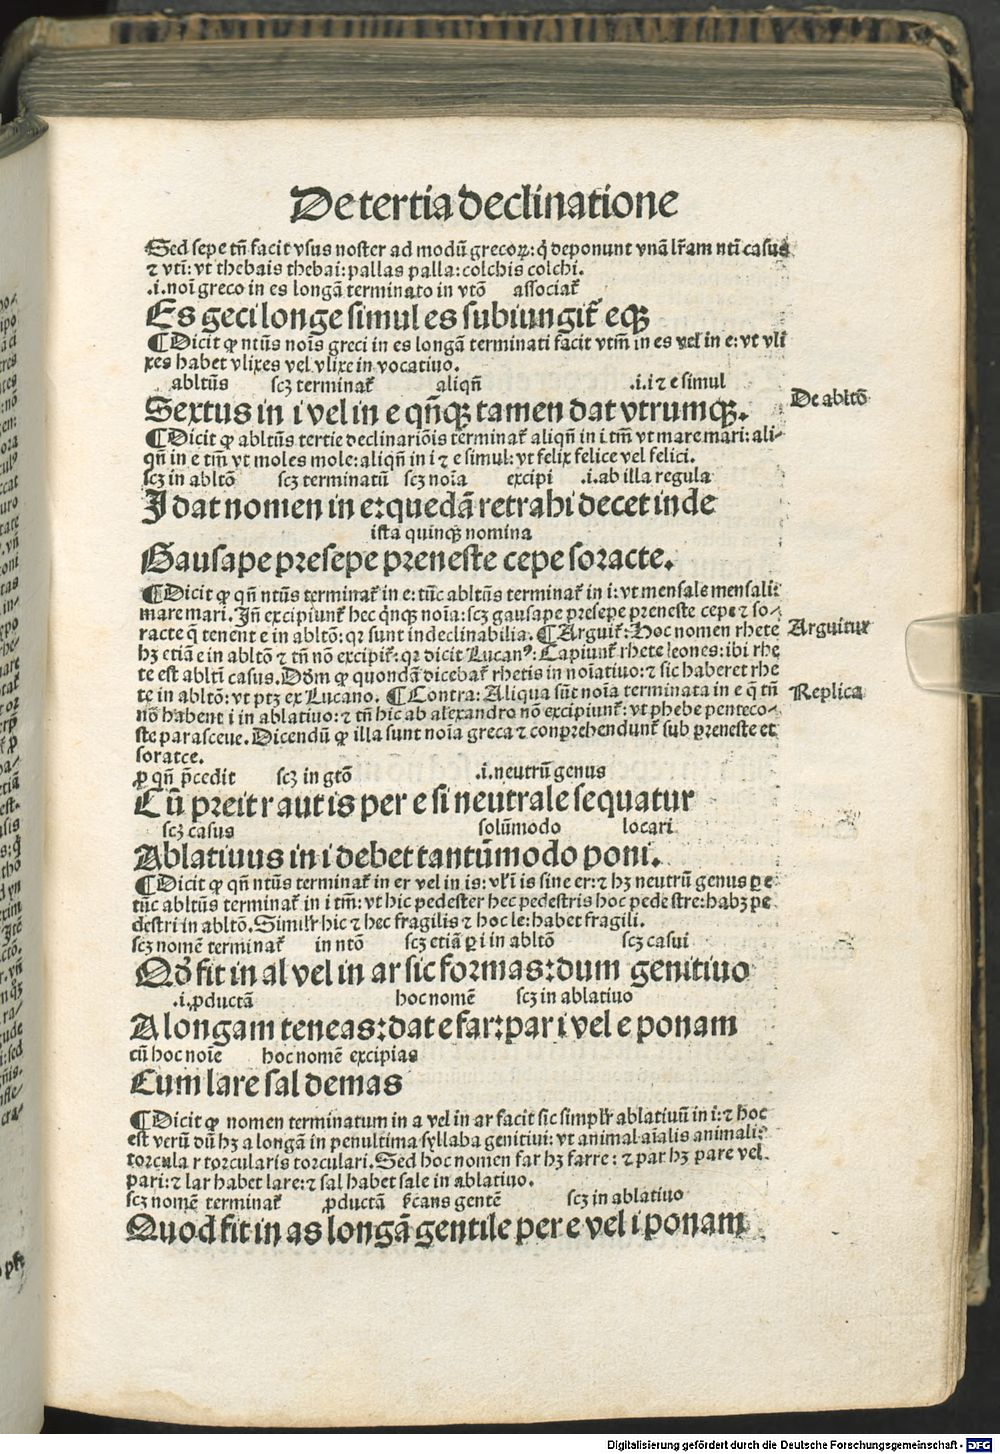 De tertia declinatione
Sed sepe tñ facit vsus noster ad modū grecoꝝ: q̇ deponunt vnā lr̄am ntī casus
⁊ vtī: vt thebais thebai: pallas palla: colchis colchi.
.i. noī greco in es longā terminato in vtō associat᷑
Es geci longe simul es subiungit᷑ eqꝫ
¶ Dicit ꝙ ntūs noīs greci in es longā terminati facit vtm̄ in es vel in e: vt vli
xes habet vlixes vel vlixe in vocatiuo.
abltūs scꝫ terminat᷑ aliqñ .i. i ⁊ e simul
Sextus in i vel in e qñqꝫ tamen dat vtrumqꝫ.
De abltō
¶ Dicit ꝙ abltūs tertie declinatiōis terminat᷑ aliqñ in i tm̄ vt mare mari: ali-
qñ in e tm̄ vt moles mole: aliqñ in i ⁊ e simul: vt felix felice vel felici.
scꝫ in abltō scꝫ terminatū scꝫ noīa excipi .i. ab illa regula
I dat nomen in e: quedā retrahi decet inde
ista quinqꝫ nomina
Gausape presepe preneste cepe soracte.
¶ Dicit ꝙ qñ ntūs terminat᷑ in e: tūc abltūs terminat᷑ in i: vt mensale mensali:
mare mari. Iñ excipiunt᷑ hec qͥnqꝫ noīa: scꝫ gausape presepe preneste cepe ⁊ so-
racte q̄ tenent e in abltō: qꝛ sunt indeclinabilia. ¶ Arguit᷑: Hoc nomen rhete
Arguitur
hꝫ etiā e in abltō ⁊ tñ nō excipit᷑: qꝛ dicit Lucanꝰ: Capiunt᷑ rhete leones: ibi rhe
te est abltī casus. Dōm ꝙ quondā dicebat᷑ rhetis in noīatiuo: ⁊ sic haberet rhe
te in abltō: vt ptꝫ ex Lucano. ¶ Contra: Aliqua sūt noīa terminata in e q̄ tñ
Replica
nō habent i in ablatiuo: ⁊ tñ hic ab alexandro nō excipiunt᷑: vt phebe penteco-
ste parasceue. Dicendū ꝙ illa sunt noīa greca ⁊ conprehendunt᷑ sub preneste et
soratce.
ꝑ qñ p̄cedit scꝫ in gtō .i. neutrū genus
Cū preit r aut is per e si neutrale sequatur
scꝫ casus solūmodo locari
Ablatiuus in i debet tantūmodo poni.
¶ Dicit ꝙ qñ ntūs terminat᷑ in er vel in is: vl̓ i is sine er: ⁊ hꝫ neutrū genus ꝑ e
tūc abltūs terminat᷑ in i tm̄: vt hic pedester hec pedestris hoc pedestre: habꝫ pe
destri in abltō. Simil̓r hic ⁊ hec fragilis ⁊ hoc le: habet fragili.
scꝫ nomē terminat᷑ in ntō scꝫ etiā ꝑ i in abltō scꝫ casui
Qō fit in al vel in ar sic formas: dum genitiuo
.i. ꝓductā hoc nomē scꝫ in ablatiuo
A longam teneas: dat e far: par i vel e ponam
cū hoc noīe hoc nomē excipias
Cum lare sal demas
¶ Dicit ꝙ nomen terminatum in a vel in ar facit sic simpl̓r ablatiuū in i: ⁊ hoc
est verū dū hꝫ a longā in penultima syllaba genitiui: vt animal aīalis animali:
torcular torcularis torculari. Sed hoc nomen far hꝫ farre: ⁊ par hꝫ pare vel
pari: ⁊ lar habet lare: ⁊ sal habet sale in ablatiuo.
scꝫ nomē terminat᷑ ꝓductā gentē scꝫ in ablatiuo
Quod fit in as longā gentile per e vel i ponam
Digitalisierung gefördert durch die Deutsche Forschungsgemeinschaft - DFG